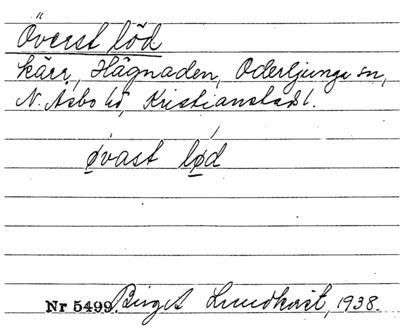 Överst löd
kärr, Hägnaden, Oderljunga sn,
N. Åsbo hd, Kristianstads l.
øvast lød
Nr 5499. Birget Lundkvist, 1938.